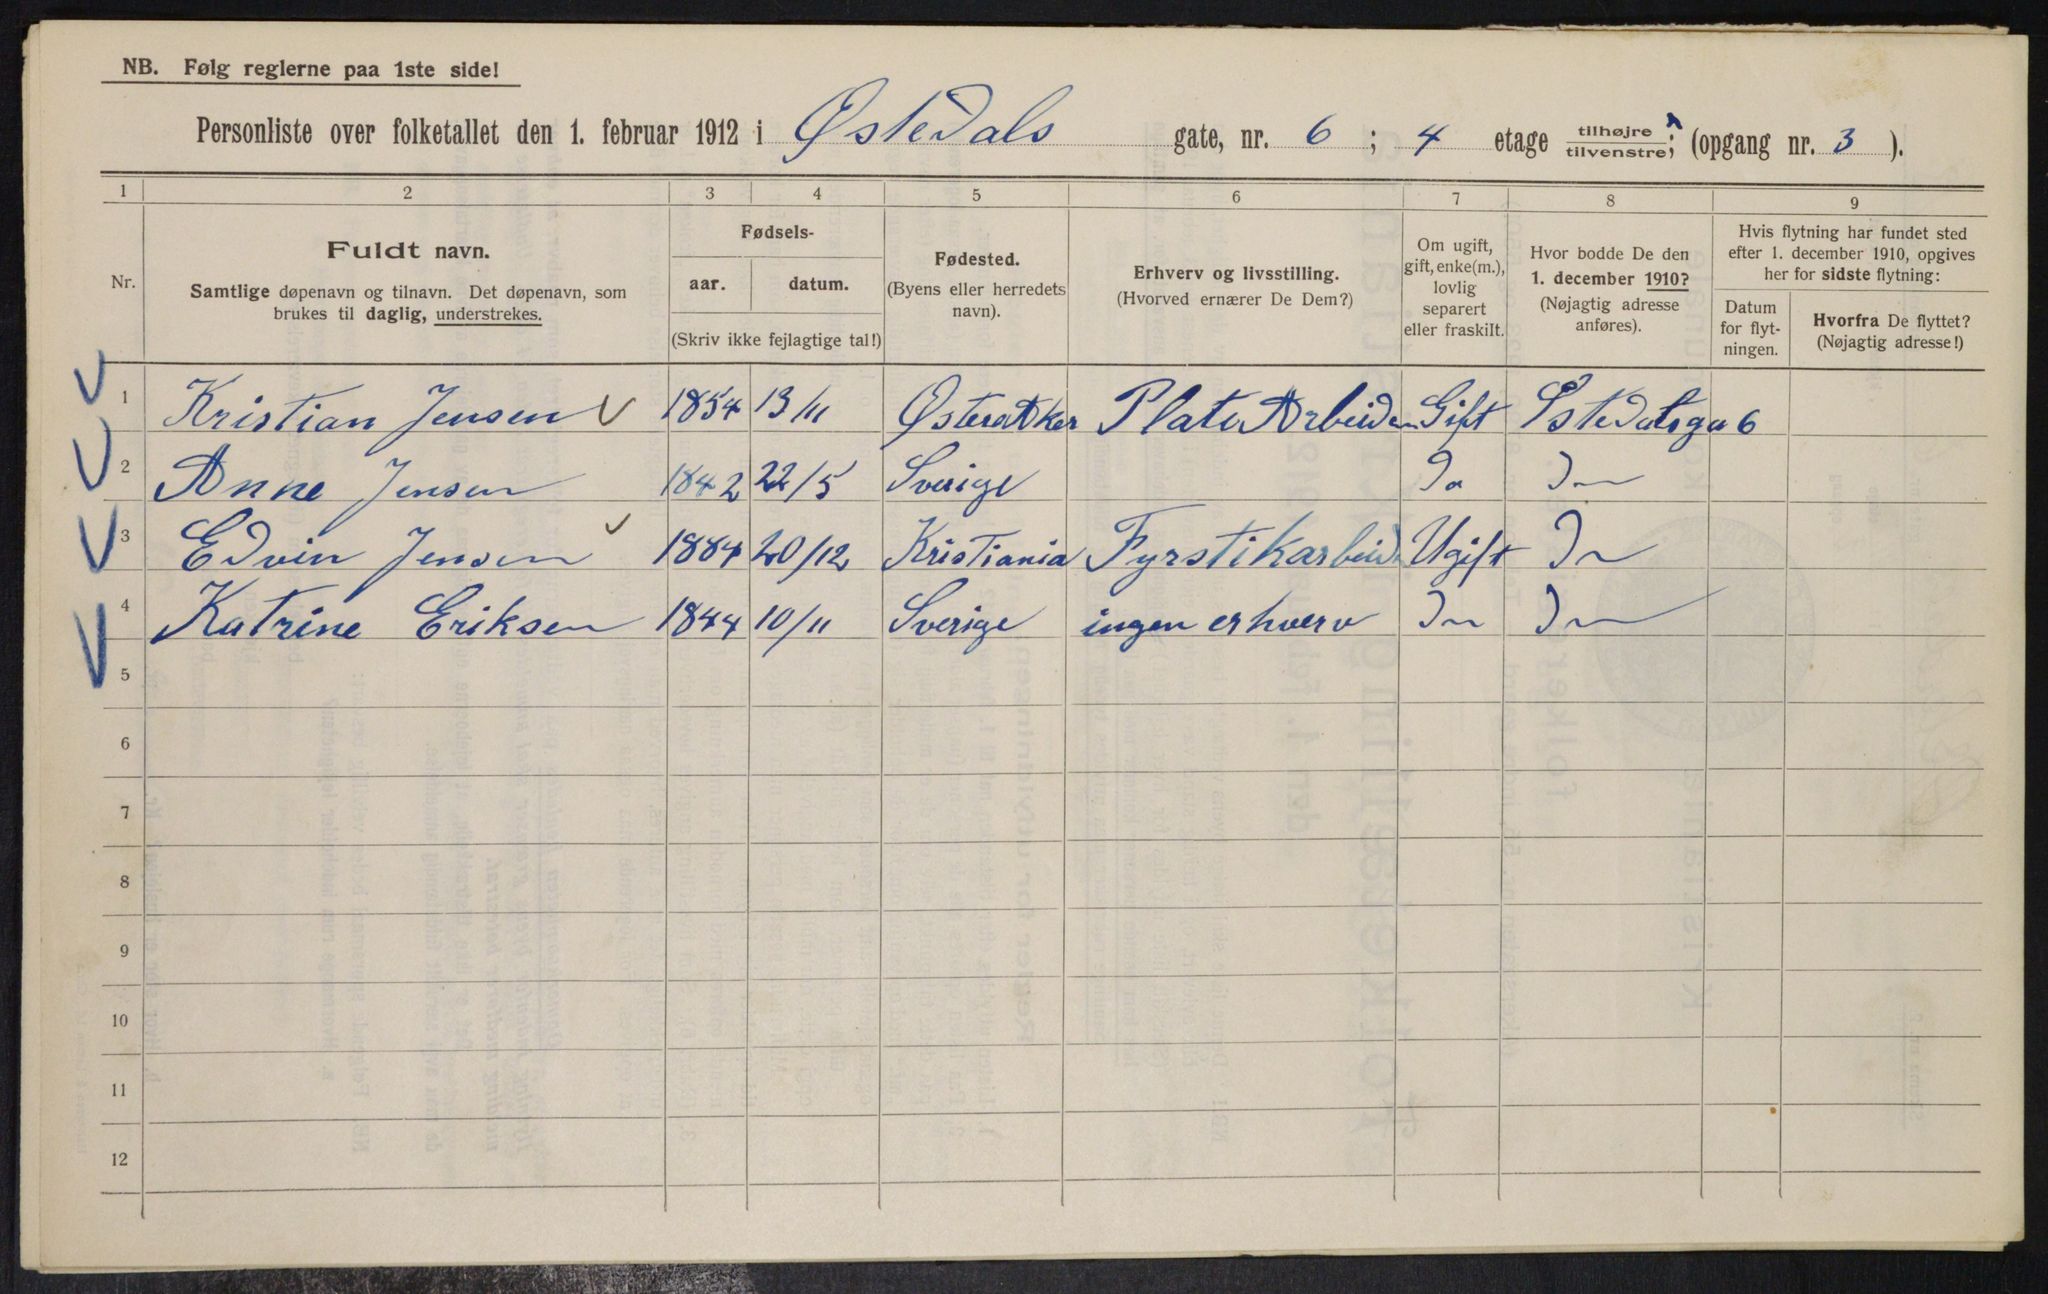 NB. Følg reglerne paa 1ste side!
Personliste over folketallet den 1. februar 1912 i Østedals gate, nr. 6 ; 4 etage tilhøjre/tilvenstre; (opgang nr. 3 ).
1 2 3 4 5 6 7 8 9
Nr.
Fuldt navn.
Samtlige døpenavn og tilnavn. Det døpenavn, som
brukes til daglig, understrekes.
Fødsels-
aar. datum.
(Skriv ikke fejlagtige tal!)
Fødested.
(Byens eller herredets
navn).
Erhverv og livsstilling.
(Hvorved ernærer De Dem?)
Om ugift,
gift, enke(m.),
lovlig
separert
eller fraskilt.
Hvor bodde De den
1. december 1910?
(Nøjagtig adresse
anføres).
Hvis flytning har fundet sted
efter 1. december 1910, opgives
her for sidste flytning:
Datum
for flyt-
ningen.
Hvorfra De flyttet?
(Nøjagtig adresse!)
1 Kristian Jensen 1854 13/11 Østre Aker Plate Arbeider Gift Østedalsga 6
2 Anne Jensen 1842 22/5 Sverige Do Do
3 Edvin Jensen 1884 20/12 Kristiania Fyrstikarbeid Ugift Do
4 Katrine Eriksen 1844 10/11 Sverige ingen erhverv Do Do
5
6
7
8
9
10
11
12